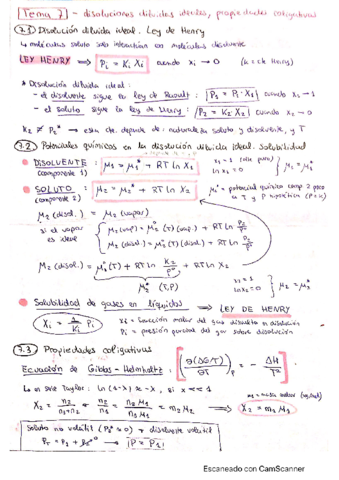 Tema 7 - disoluciones diluidas ideales, propiedades coligativas
7.1 Disolución diluida ideal. Ley de Henry
↳ moléculas soluto solo interaccionan con moléculas disolvente
LEY HENRY ⟹ Pi = Ki Xi cuando xi → 0 (K = cte Henry)
* Disolución diluida ideal:
- el disolvente sigue la ley de Raoult: P1 = P1* · X1 cuando X1 → 1
- el soluto sigue la ley de Henry: P2 = K2 · X2 cuando X2 → 0
K2 ≠ P2* → esta cte depende de: naturaleza soluto y disolvente, y T
7.2 Potenciales químicos en la disolución diluida ideal. Solubilidad
DISOLVENTE: μ1 = μ1* + RT ln X1
(componente 1)
x1 = 1
ln x1 = 0 } μ1 = μ1*
SOLUTO: μ2 = μ2* + RT ln X2
(componente 2)
μ2* = potencial químico comp. 2 puro
a T y P
μ2 (disol.) = μ2 (vapor)
si el vapor
es ideal
μ2 (vap) = μ2°(T) (vap.) + RT ln P2/P°
μ2 (disol.) = μ2°(T) (disol.) + RT ln P2/P°
μ2 (disol.) = μ2°(T) + RT ln K2/P° + RT ln X2
μ2* (T,P)
x2 = 1
ln x2 = 0 } μ2 = μ2*
Solubilidad de gases en líquidos ⟹ LEY DE HENRY
Xi = 1/Ki Pi
xi = fracción molar del gas disuelto en disolución
Pi = presión parcial del gas sobre disolución
7.3 Propiedades coligativas
Ecuación de Gibbs - Helmholtz: [∂(ΔG/T)/∂T]P = - ΔH/T²
Lo en serie Taylor: ln (1-x) ≈ -x, si x << 1
X2 = n2/n1+n2 ≈ n2/n1 = n2 M1/m1 = m2 M1 ⟹ X2 = m2 M1
Soluto no volátil (P2* ≈ 0) + disolvente volátil
PT = P1 + P2 ⟹ P = P1
Escaneado con CamScanner